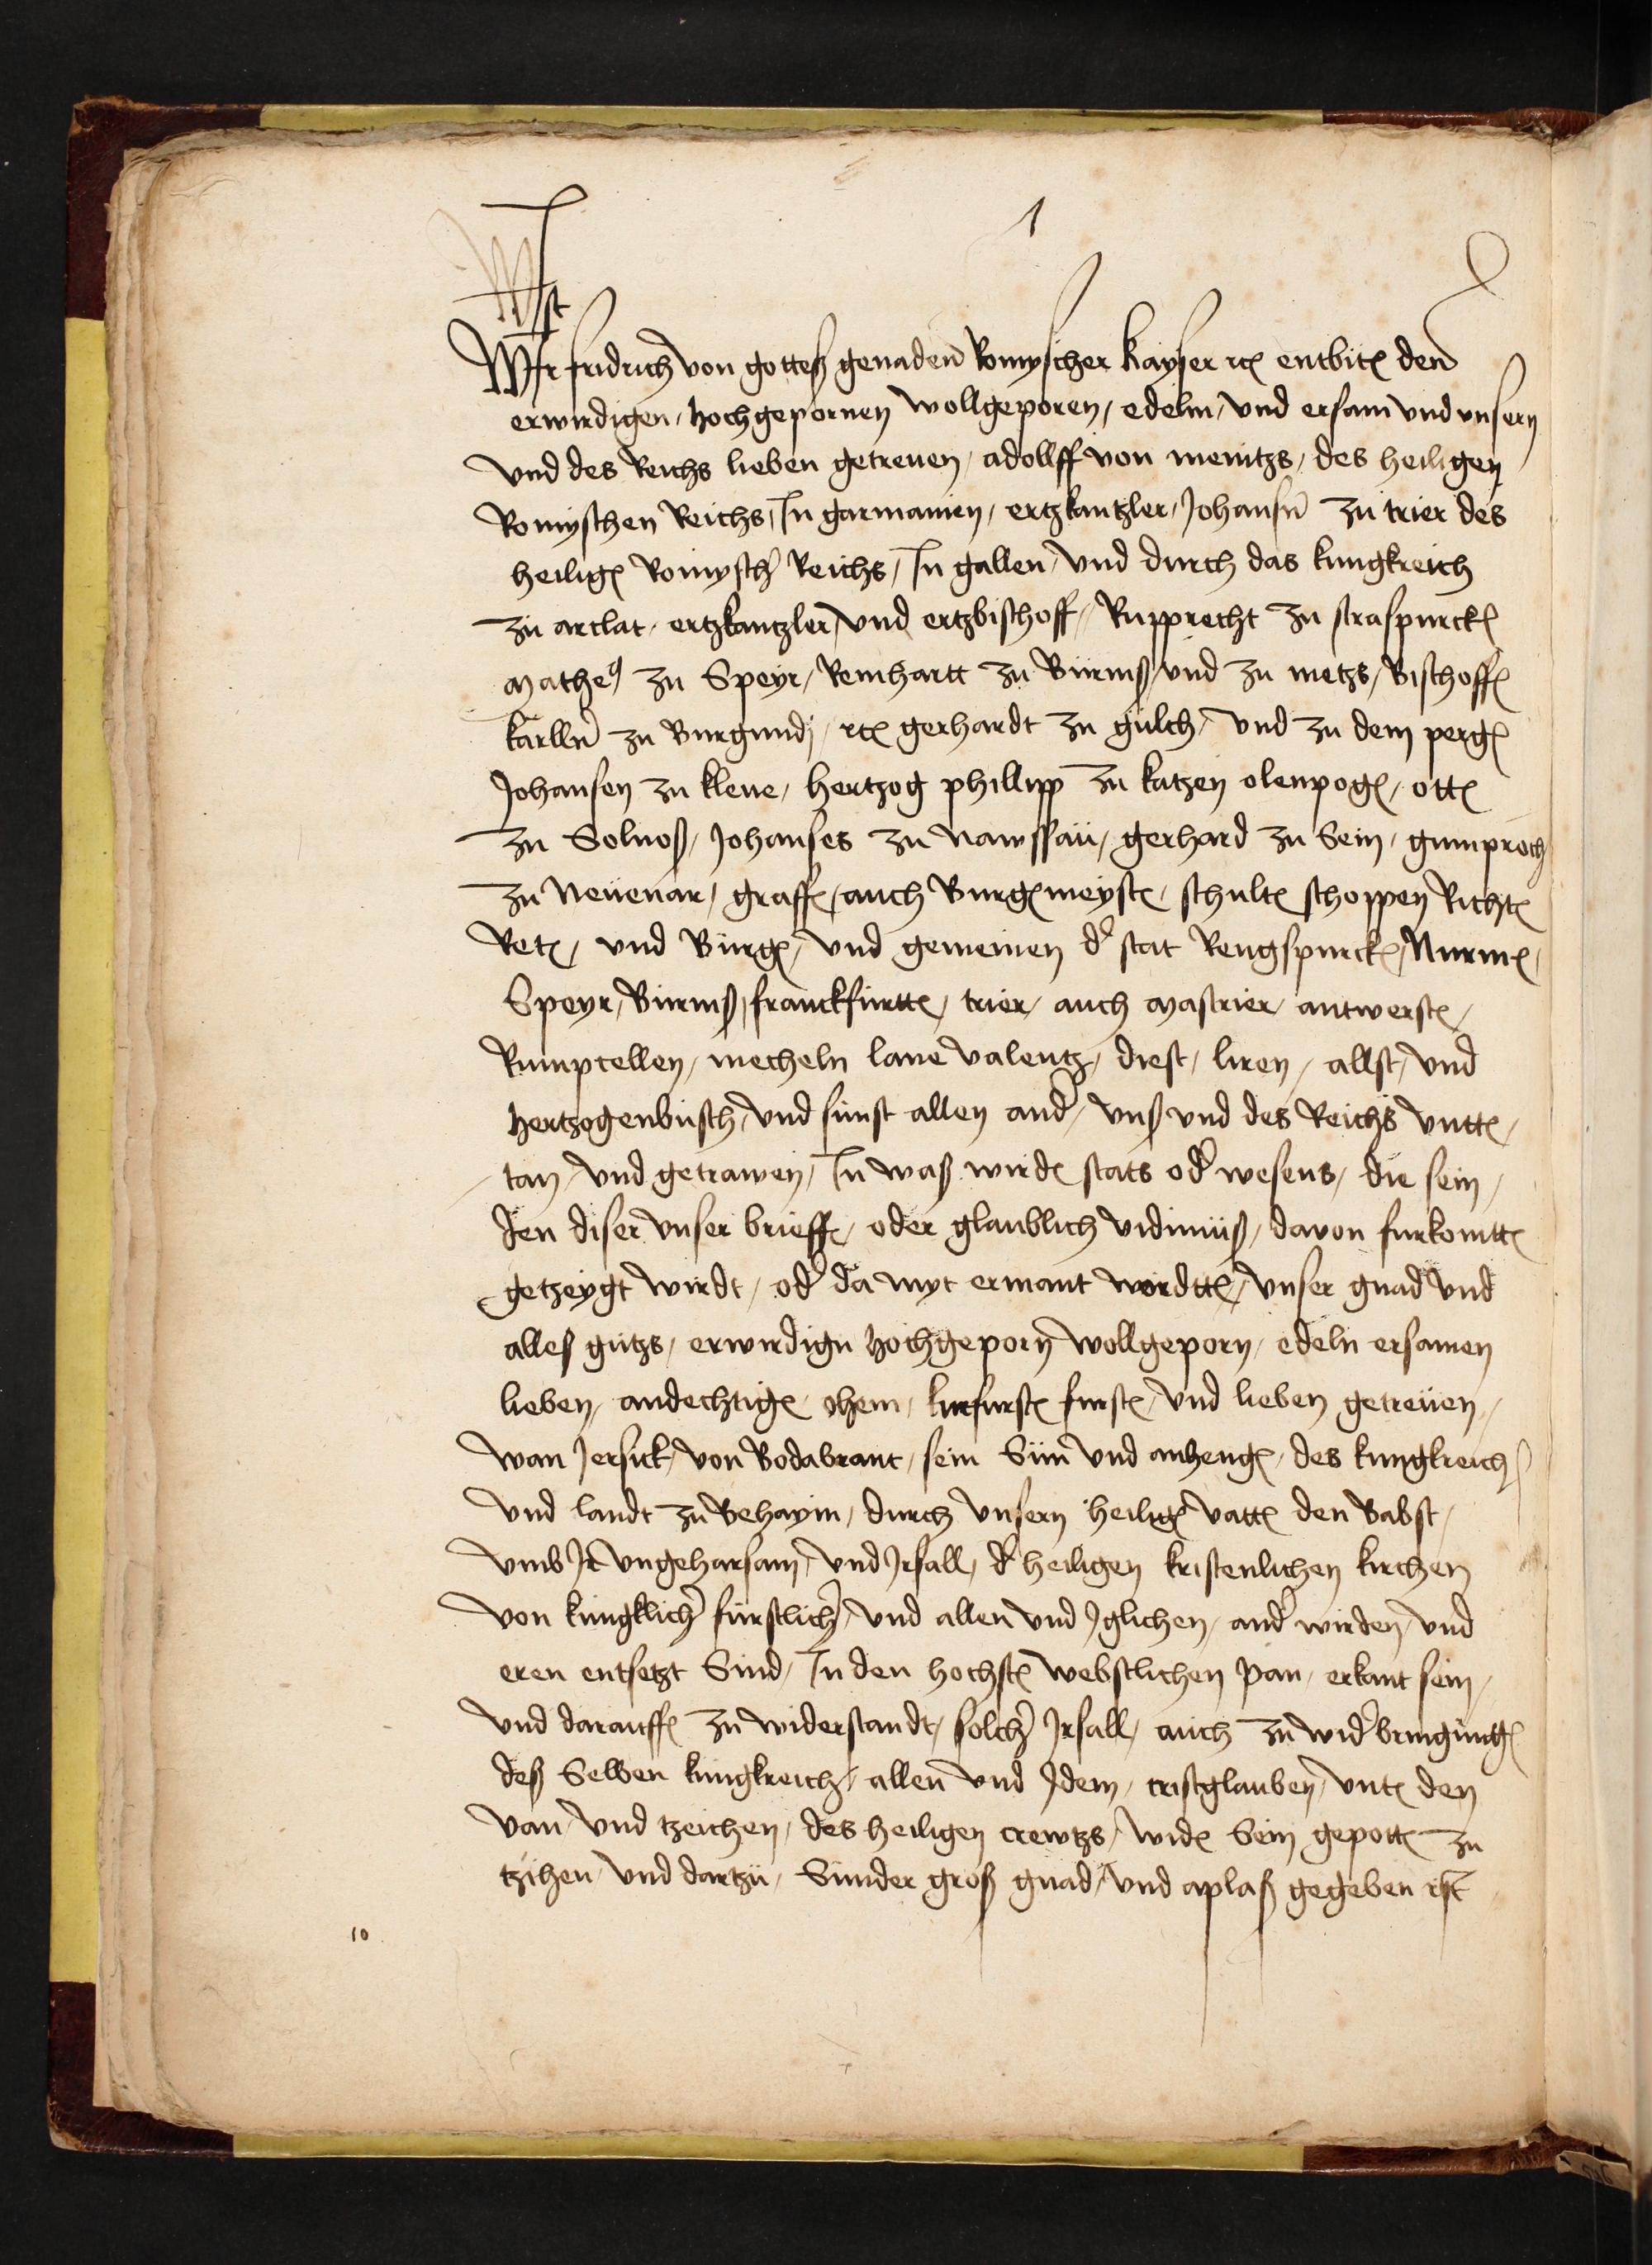 1
Ist
Wir fridrich von gottes genaden Romyscher Kayser etc entbiten den
erwirdigen, hochgepornen wollgeporen, edeln, vnd ersam vnd vnsern
vnd des Reichs lieben getreuen, adollff von menitzs, des heiligen
Romyschen Reichs, In garmanien, ertzkantzler, Johansen zu trier des
heiligen Romyschen Reichs, In gallen, vnd durch das kungkreich
zu arclat, ertzkantzler, vnd ertzbischoff, Rupprecht zu straspurcken
Matheus zu Speyr, Reinhartt zu Burmß, vnd zu metzs, Bischoffen
karlln zu Burgundj, etc gerhardt zu gulch, vnd zu dem pergen
Johansen zu kleue, hertzog phillipp zu katzen olenpogen, otten
zu Solnoß, Johanses zu Nawssau, gerhard zu Sein, gumprech
zu Neuenar, graffen, auch Burgermeyster, schulten schoppen Richter
Reten, vnd Burger, vnd gemeinen der stat Rengspurcken, Nurmen,
Speyr, Burmß, franckfurtten, trier, auch mastrier, antwersten,
kumptellen, mecheln laue valentz, diest, liren, allst, vnd
hertzogenbusch, vnd sunst allen ander, vnß vnd des Reichs vntter,
tan, vnd getrawen, In waß wirden stats oder wesens, die sein,
den diser vnser brieffe, oder glaublich vidimuß, davon furkomtten
getzeygt wirdt, oder da myt ermant wordtten, vnser gnad vnd
alles gutzs, erwirdign hochgeporn wollgeporn, edeln ersamen
lieben, andechtigen, ohem, kurfursten fursten, vnd lieben getreuen,
wan Jersick, von Bodabrant, sein Sun vnd anhenger, des kungkreich
vnd landt zu Behaym, durch vnsern heiligen vatter den Babst,
vmb Ir vngeharsam, vnd Irsall, der heiligen kristenlichen kirchen
von kungklicher furstlicher, vnd allen vnd Iglichen, ander wirden, vnd
eren entsetzt Sind, In den hochsten webstlichen pan, erkant sein,
vnd darauffen zu widerstandt, solcher Irsall, auch zu wider bringungen
deß Selben kungkreich, allen vnd Idem, cristglauben, vnter den
van vnd tzeichen, des heiligen crewtzs, wider Sein gepotten zu
tzihen, vnd dartzu, Sunder groß gnad, vnd aplaß gegeben ist
10